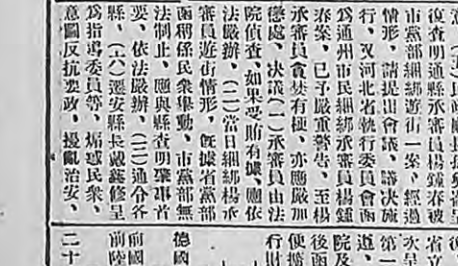 復查明通縣承審員楊鍾春被
市黨部綑綁遊街一案、經過
情形、請提出會議、議決施
行、又河北省執行委員會函
爲通州市民綑綁承審員楊鍾
春案、已予嚴重警告、至楊
承審員貪婪有極、亦應嚴加
懲處、決議(一)承審員由法
院偵查、如果受賄有據、應依
法嚴辦、(二)當日綑綁楊承
審員遊街情形、旣據省黨部
函稱係民衆舉動、市黨部無
法制止、應與縣查明肇事首
要、依法嚴辦、(三)通令各
縣、(六)遷安縣長戴蘊修呈
爲指導委員等、煽惑民衆、
意圖反抗要政、擾亂治安、
省立
次呈
第一
道、
院及
後函
便擋
行財
德國
前國
前陸
二十